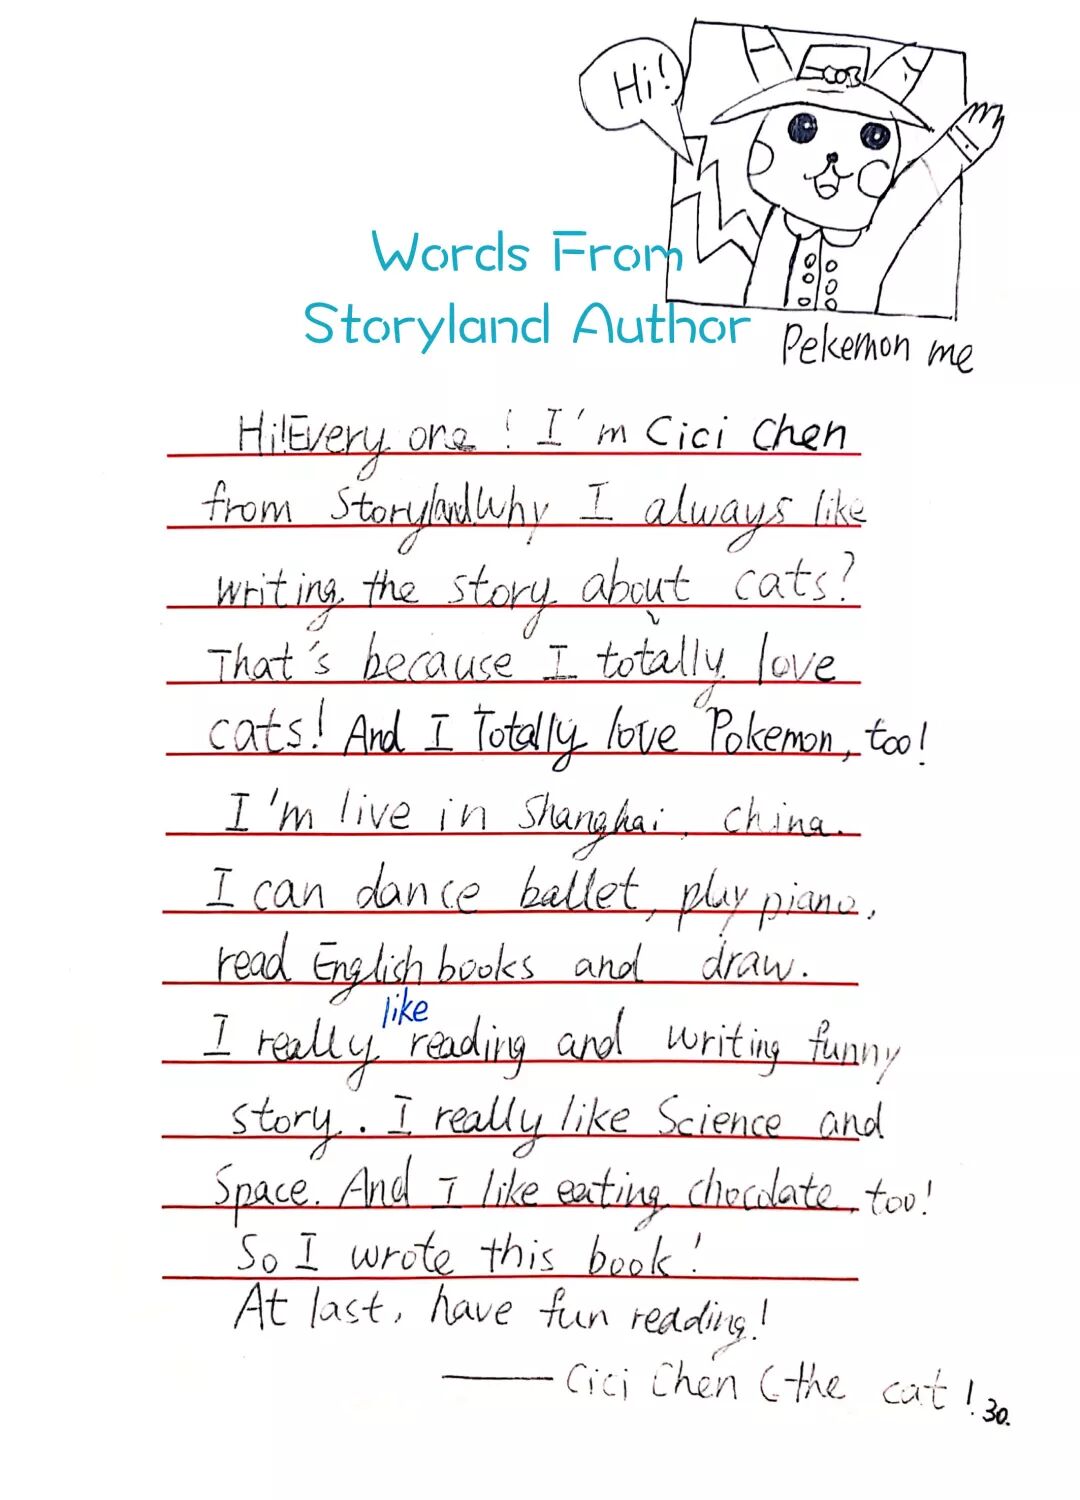 Hi!
Words From
Storyland Author
Pekemon me
Hi!Every one! I'm Cici Chen
from Storyland.Why I always like
writing the story about cats?
That's because I totally love
cats! And I Totally love Pokemon, too!
I'm live in Shanghai, china.
I can dance ballet, play piano,
read English books and draw.
like
I really reading and writing funny
story. I really like Science and
Space. And I like eating chocolate, too!
So I wrote this book!
At last, have fun reading!
—— Cici Chen (the cat!
30.